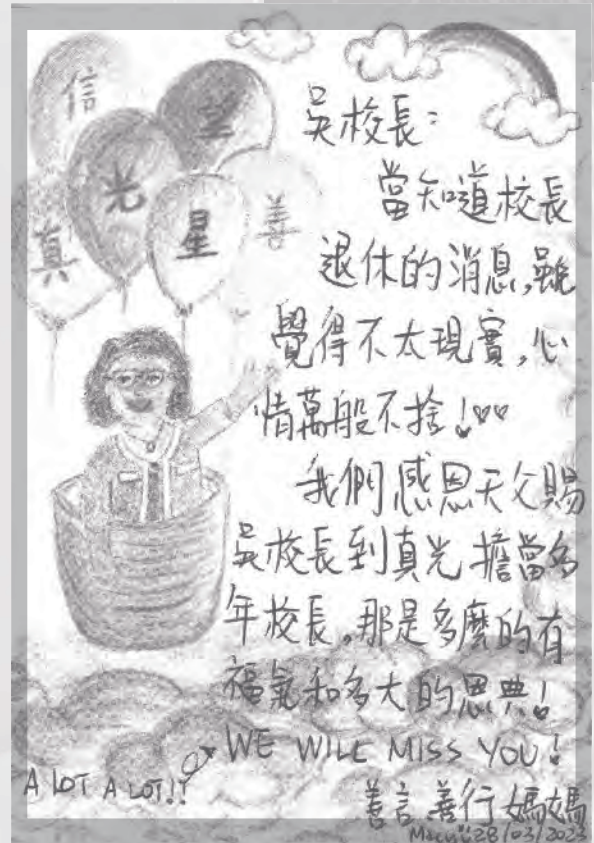 信 望
光
真 星 善
吳校長：
當知道校長
退休的消息，雖
覺得不太現實，心
情萬般不捨！
我們感恩天父賜
吳校長到真光擔當多
年校長。那是多麼的有
福氣和多大的恩典！
WE WILL MISS YOU!
A LOT A LOT!!
善言善行媽媽
28/03/2023